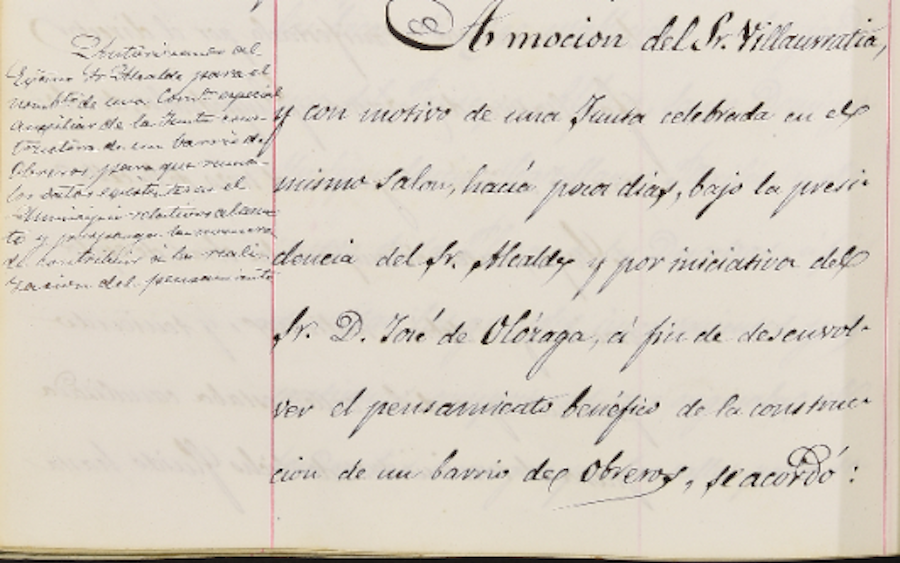 Autorizando al
Excmo Sr Alcalde para el
nombto de una Comon especial
auxiliar de la Junta cons-
tructora de un barrio de
Obreros, para que reuna
los datos que existen en el
Municipio relativos al asun-
to y proponga la manera
de contribuir á la reali-
zacion del pensamiento
A mocion del Sr. Villaurrutia,
y con motivo de una Junta celebrada en el
mismo salon, hacía pocos dias, bajo la presi-
dencia del Sr. Alcalde y por iniciativa del
Sr. D. José de Olózaga, á fin de desenvol-
ver el pensamiento benéfico de la construc-
cion de un barrio de Obreros, se acordó: